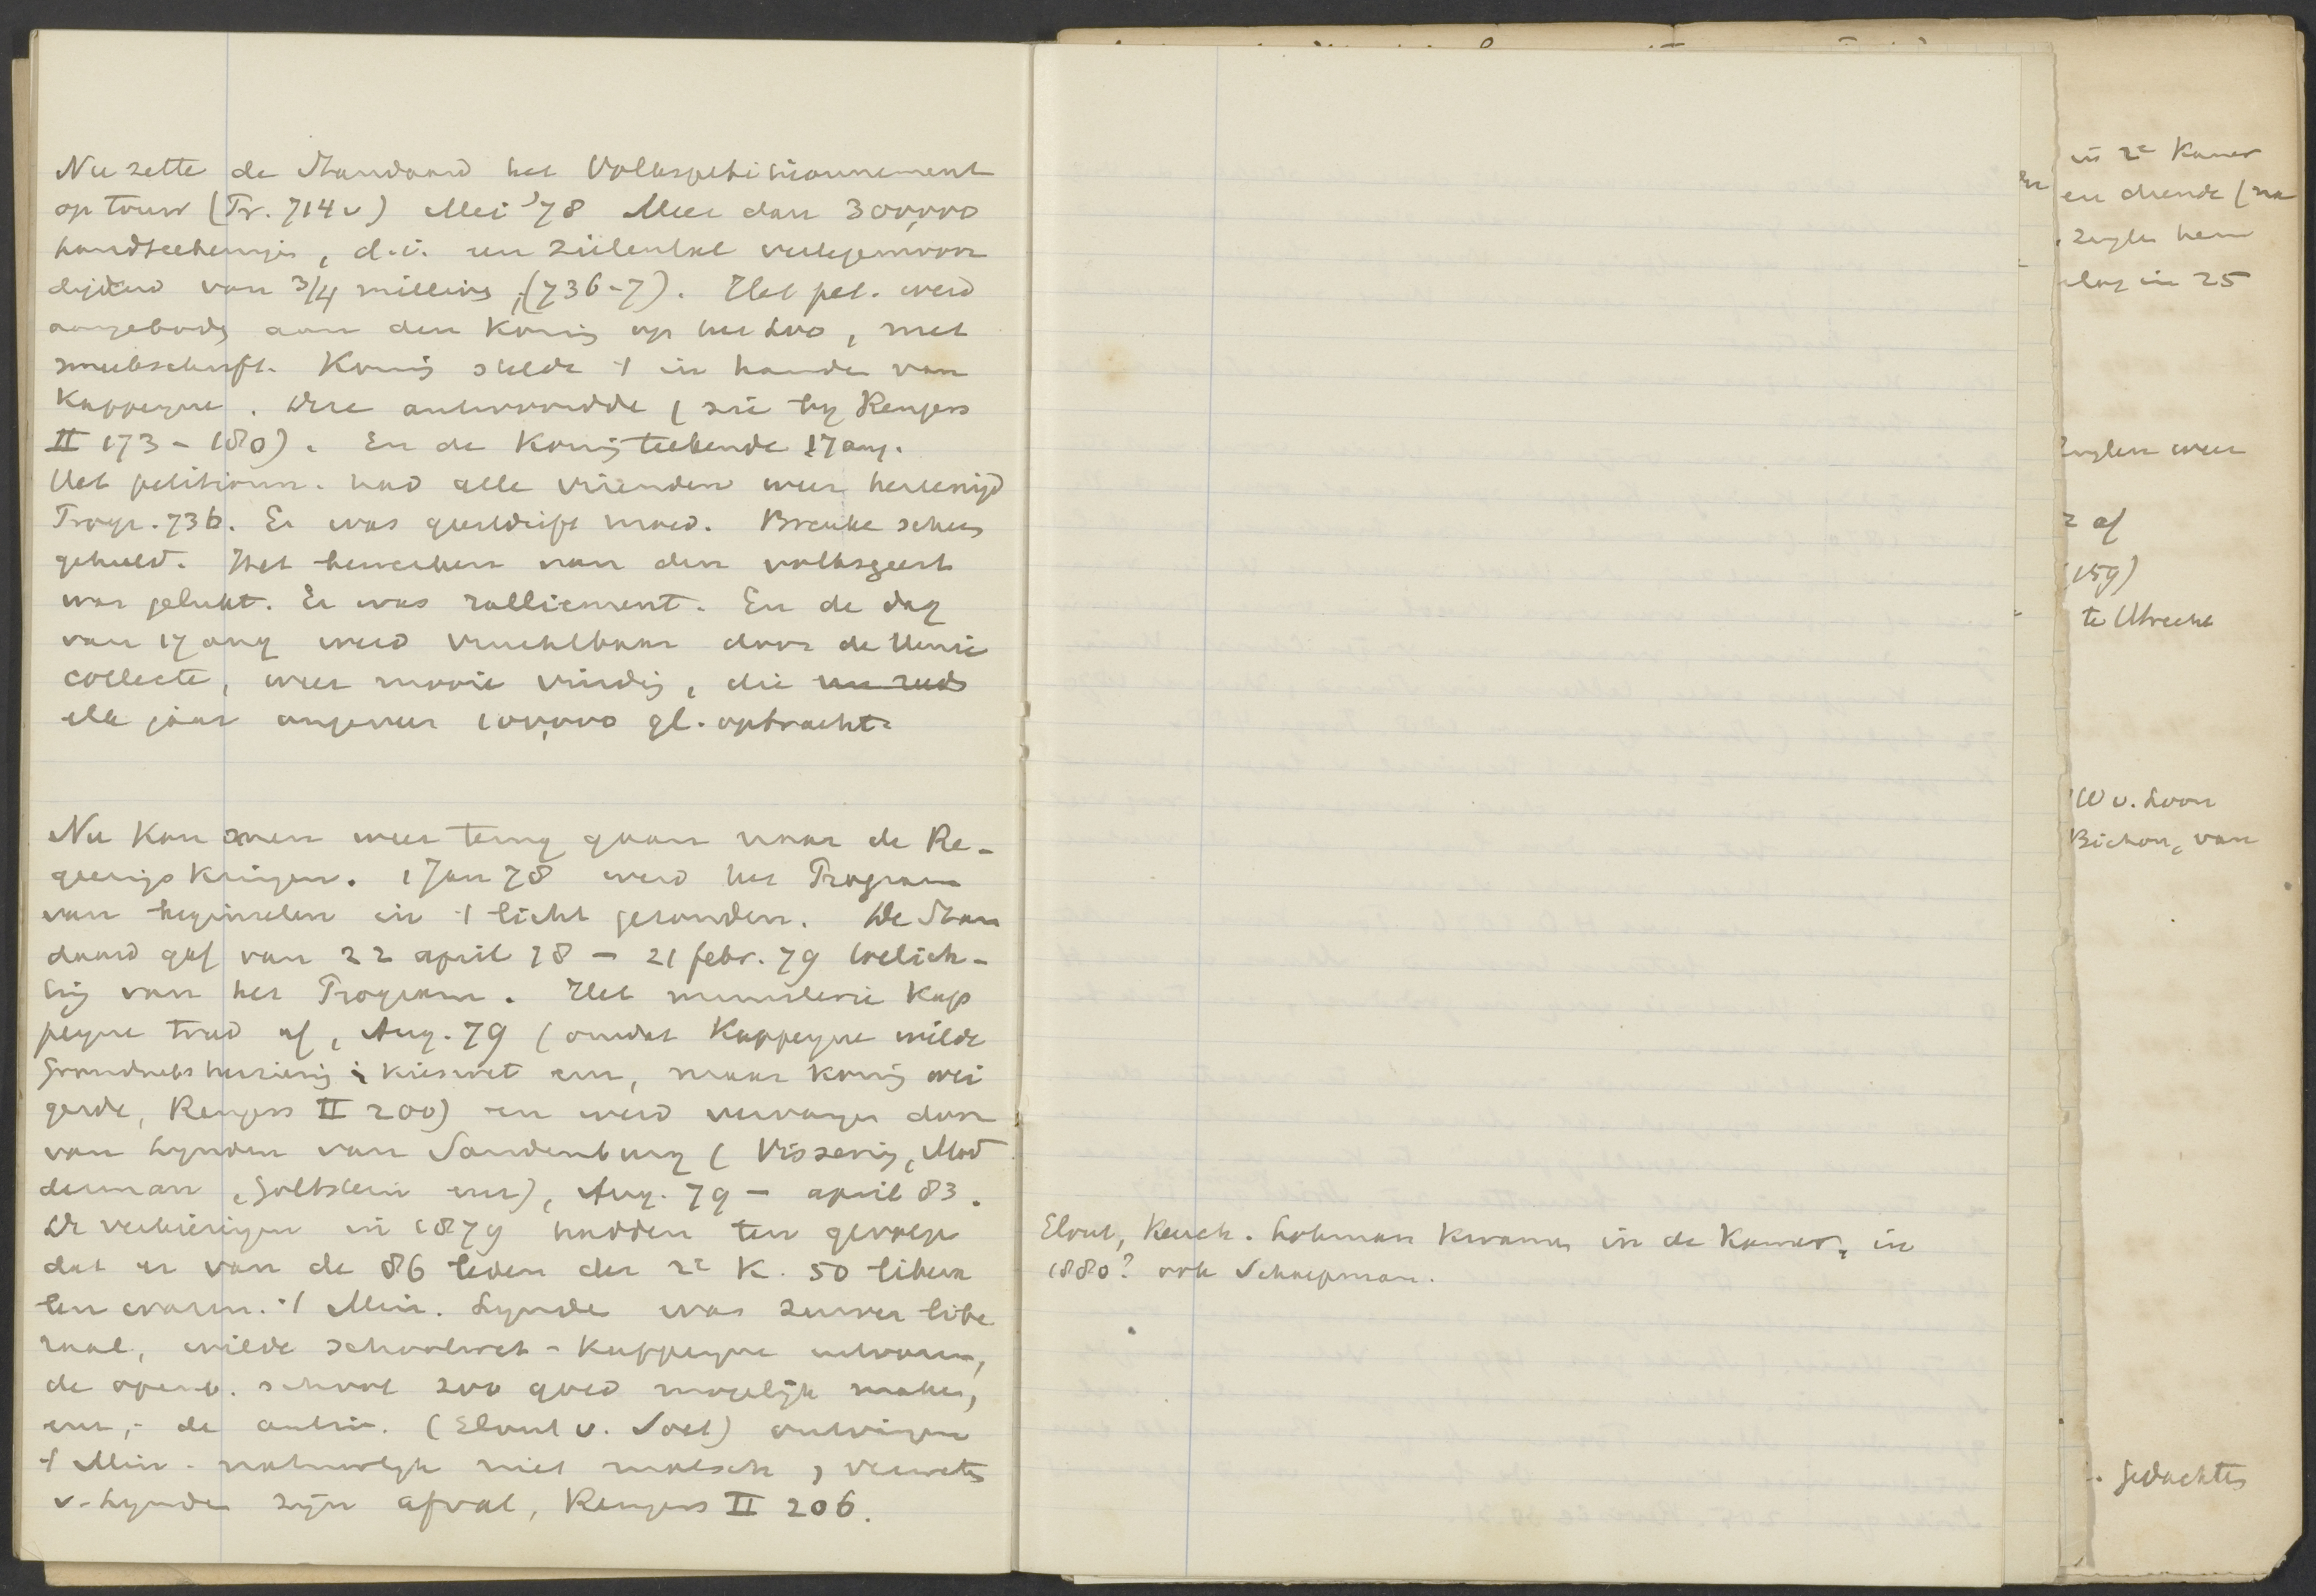 Nu zette de Standaard het Volkspetitionnement
op touw (Tr. 714v) Mei '78 Meer dan 300,000
handteekenings, d.i. een zielental vertegenwoor
digend van 3/4 millioen, (736-7). Het pet. werd
aangeboden aan den Koning op het Loo, met
smeekschrift. Koning stelde 't in handen van
Kappeyne. Deze antwoordde (zie bij Rengers
II 173-180). En de Koning teekende 17 aug.
Het petitionn. had alle vrienden weer hereenigd
Progr. 736. Er was geestdrift moed. Breuke scheen
geheeld. Het bewerken van den volksgeest
was gelukt. Er was ralliement. En de dag
van 17 aug werd vruchtbaar door de Unie
collecte, weer mooie vinding, die
elk jaar ongeveer 100,000 gl. opbracht.
Nu kan men weer terug gaan naar de Re-
geeringskringen. 1 Jan 78 werd het Program
van beginselen in 't licht gezonden. De Stan
daard gaf van 22 april 78 - 21 febr. 79 toelich-
ting van het Program. Het ministerie Kap
peyne trad af, Aug. 79 (omdat Kappeyne wilde
Grondwetsherziening i kieswet enz, maar koning wei
gerde, Rengers II 200) en werd vervangen door
van Lynden van Sandenburg (Vissering, Mod
derman, Goltstein enz), Aug. 79 - april 83.
De verkiezingen in 1879 hadden ten gevolge
dat er van de 86 leden der 2e K. 50 libera
len waren. 't Min. Lynden was zuiver libe
raal, wilde schoolwet-Kappeyne uitvoeren,
de openb. school zoo goed mogelijk maken,
enz,- de antir. (Elout v. Soet) ontvingen
't Min. natuurlijk niet malsch, verweten
v. Lynden zijn afval, Rengers II 206.
Elout, Keuch. Lohman kwamen in de Kamer, in
1880? ook Schaepman.
in 2e Kamer
en diende (na
hem
in 25
weer
af
159)
te Utrecht
W v. Loon
Bichon, van
. gedachten